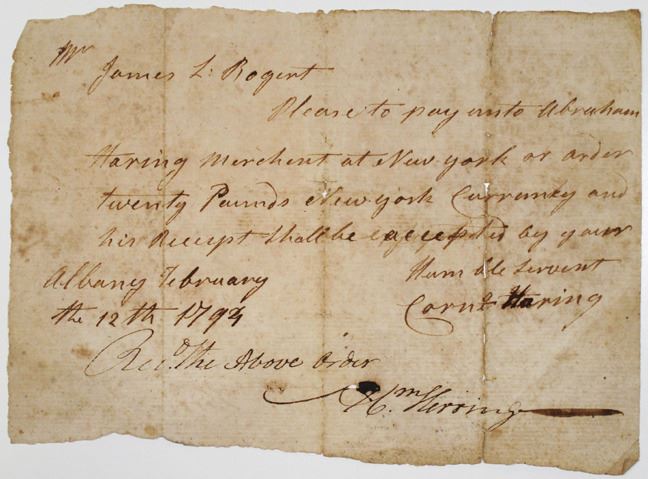 Mr
James L: Bogert
Please to pay unto Abraham
Haring Merchent at New york or order
twenty Pounds New york Curranky and
his Receipt Shall be excepted by your
Albany February Humble Servent
the 12th 1794 Corns Haring
Recd. the Above Order
Abm. Herring